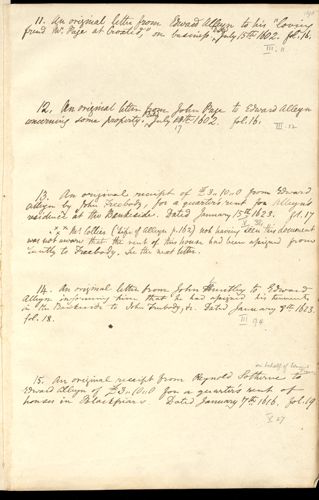 11. An original letter from Edward Alleyn to his "loving
frend Mr. Page at Croslie," on business, July 15th 1602. fol. 16.
III. 11
12. An original letter from John Page to Edward Alleyn
concerning some property. July 1602. fol. 16.
17
III. 12
13. An original receipt of £3..10..0 from Edward
Alleyn by John Freebody, for a quarter's rent for Alleyn's
residence at the Bankside. Dated January 15th 1623. fol. 17
Mr. Collier (Life of Alleyn p. 162) not having seen this document
was not aware that the rent of this house had been assigned
to Freebody. See the next letter.
14. An original letter from John Huntley to Edward
Alleyn informing him that he had assigned his tenements
in the Bankside to John Freebody, &c. Dated January 8th 1623.
fol. 18.
III. 94
on behalf of
15. An original receipt from Reynold to
Edward Alleyn of £3..10..0 for a quarter's rent of
houses in Blackfriars. Dated January 7th 1616. fol. 19
V. 27